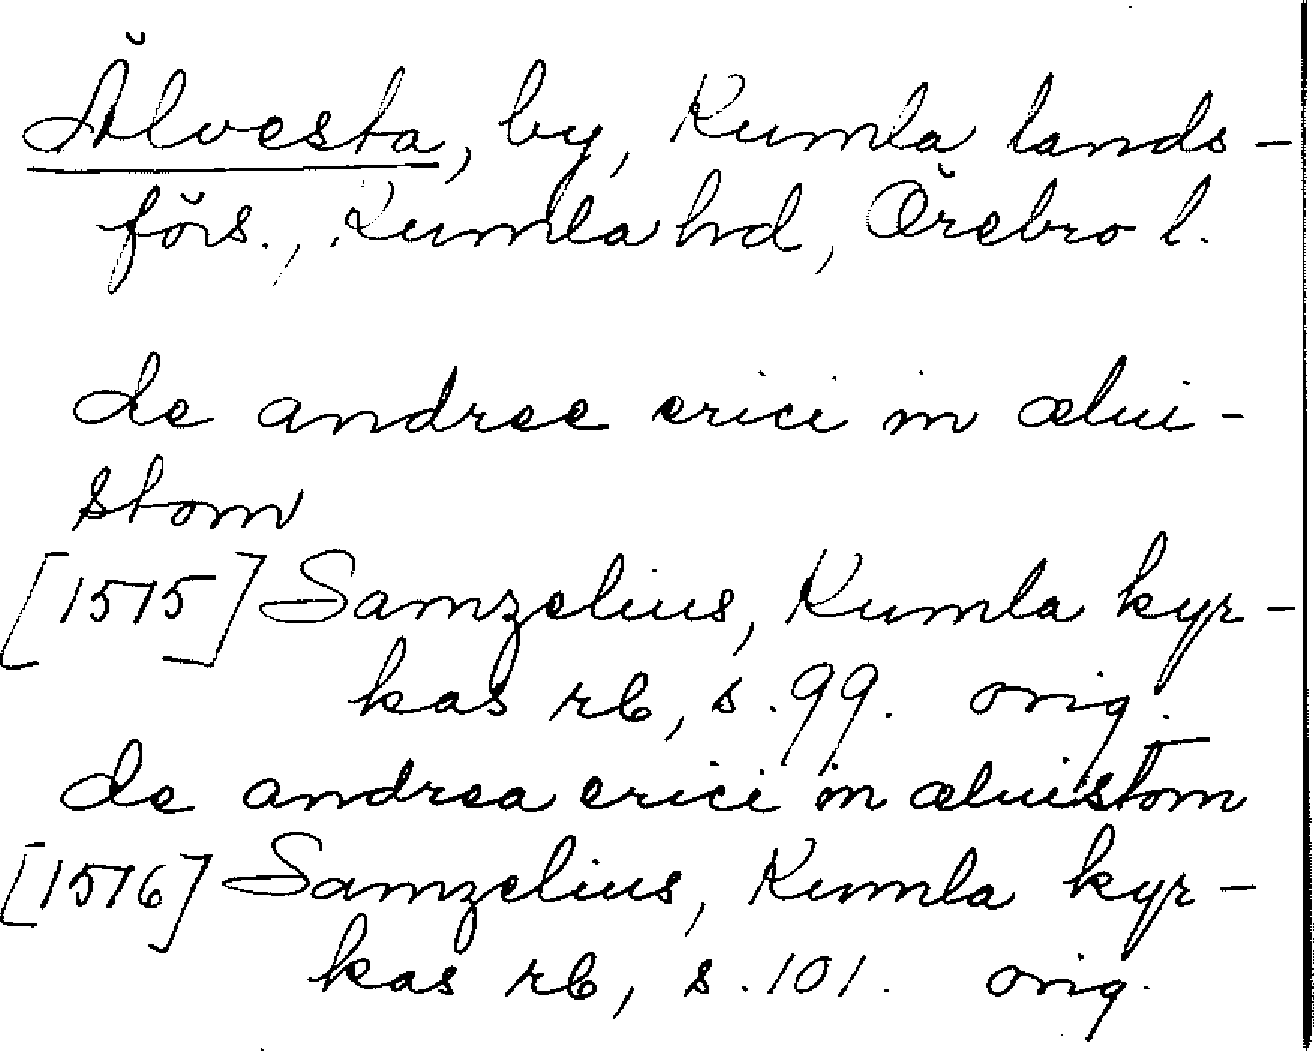 Älvesta, by, Kumla lands-
förs., Kumla hd, Örebro l.
de andree erici in ælui-
stom
[1515] Samzelius, Kumla kyr-
kas rb, s. 99. orig.
de andrea erici in æluistom
[1516] Samzelius, Kumla kyr-
kas rb, s. 101. orig.